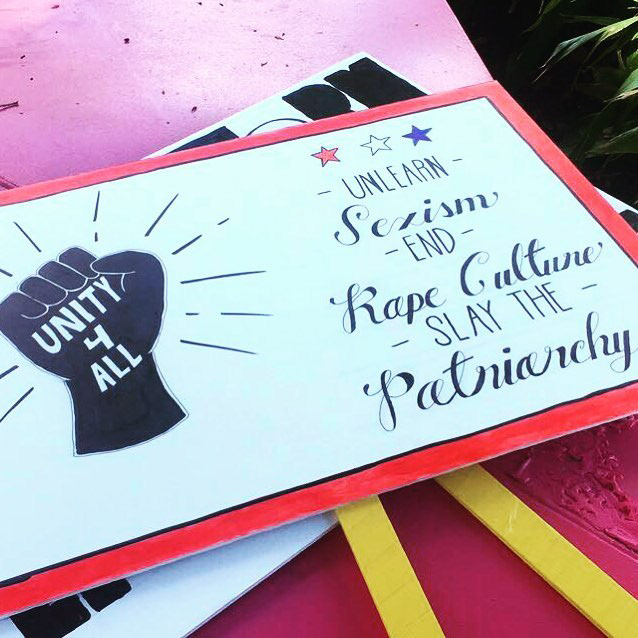 UNITY
4
ALL
- UNLEARN -
Sexism
- END -
Rape Culture
- SLAY THE -
Patriarchy